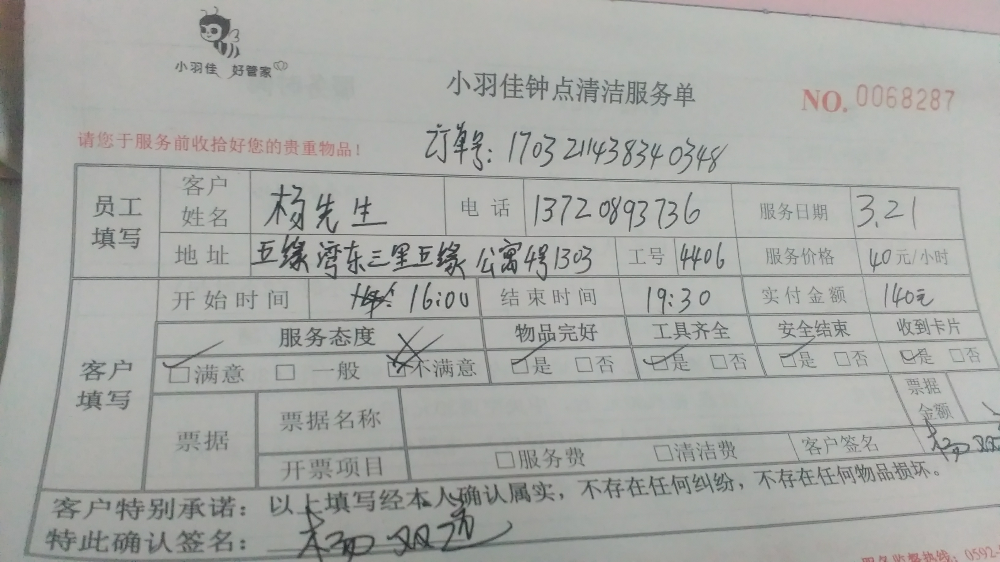 小羽佳 好管家
小羽佳钟点清洁服务单
NO. 0068287
请您于服务前收拾好您的贵重物品！
订单号：170321143834 0348
员工填写 客户姓名 杨先生 电话 13720893736 服务日期 3.21
地址 五缘湾东三里五缘公寓4号1303 工号 4406 服务价格 40元/小时
客户填写 开始时间 16:00 结束时间 19:30 实付金额 140元
服务态度 物品完好 工具齐全 安全结束 收到卡片
☑满意 □一般 不满意 ☑是 □否 ☑是 □否 ☑是 □否 ☑是 □否
票据 票据名称 票据金额
开票项目 □服务费 □清洁费 客户签名 杨双
客户特别承诺：以上填写经本人确认属实，不存在任何纠纷，不存在任何物品损坏。
特此确认签名：杨双
服务监督热线：0592-